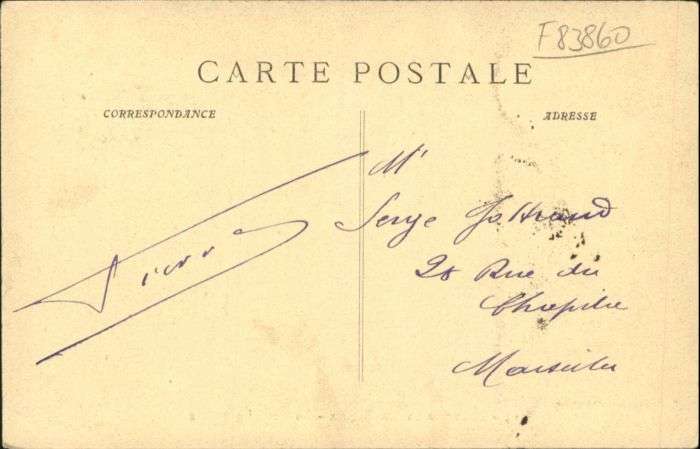 F83860
CARTE POSTALE
CORRESPONDANCE
ADRESSE
Mr
Serge
28 Rue du
Chapitre
Marseille